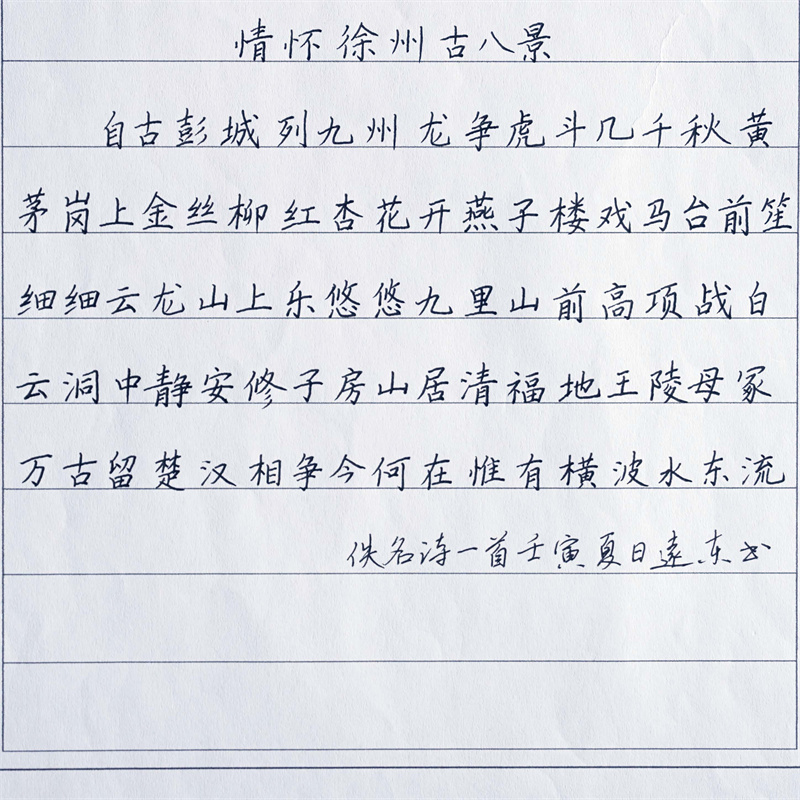 情怀徐州古八景
自古彭城列九州龙争虎斗几千秋黄
茅岗上金丝柳红杏花开燕子楼戏马台前笙
细细云龙山上乐悠悠九里山前高项战白
云洞中静安修子房山居清福地王陵母冢
万古留楚汉相争今何在惟有横波水东流
佚名诗一首壬寅夏日远东书